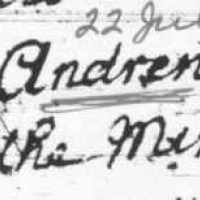 22 Jul
Andren
the Mar